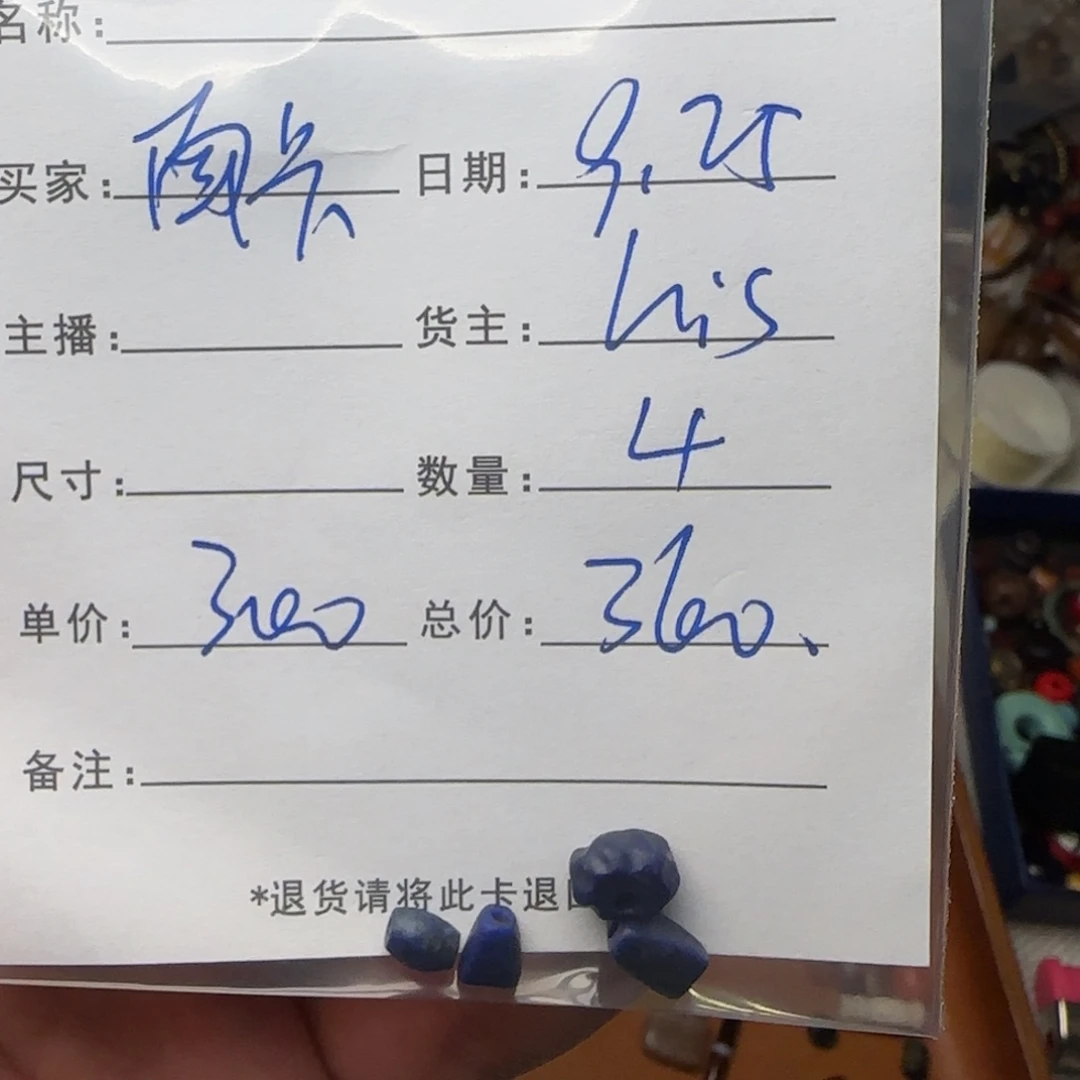 名称:
买家: 日期: 9.25
主播: 货主: his
尺寸: 数量: 4
单价: 总价: 3600、
备注:
*退货请将此卡退回